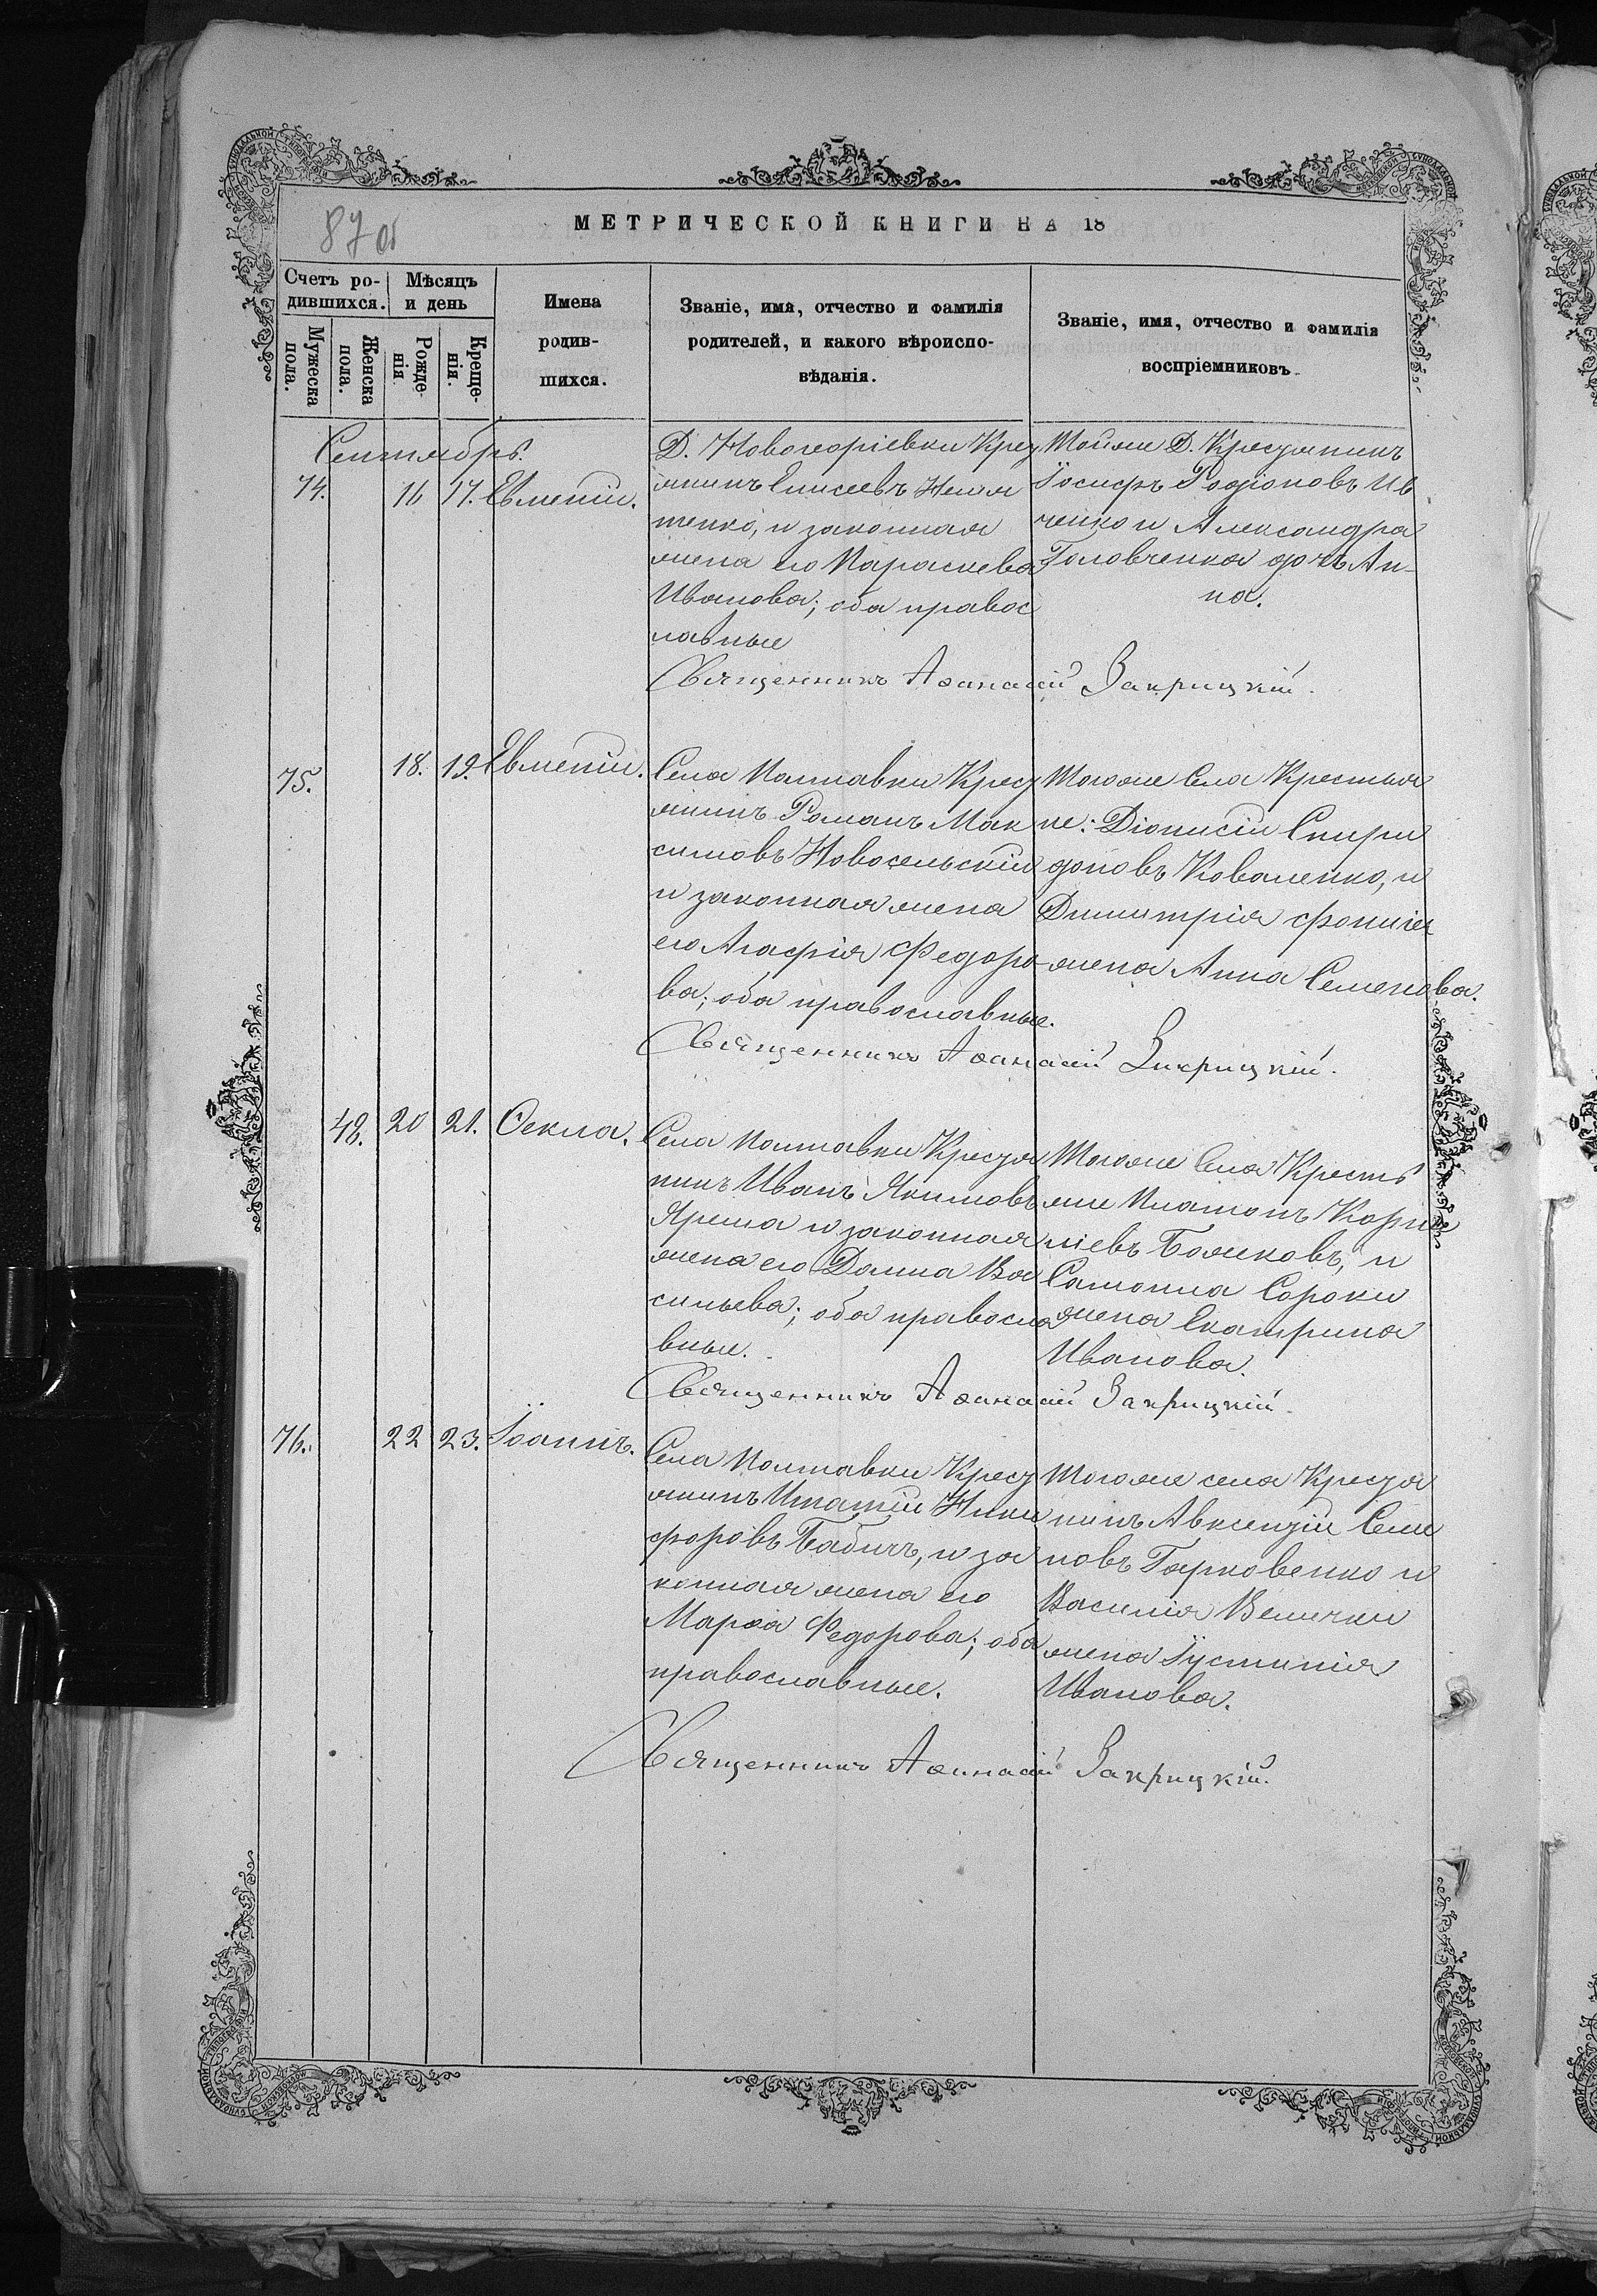 87 об
МЕТРИЧЕСКОЙ КНИГИ НА 18
Счетъ ро-
дившихся.
Мѣсяцъ
и день
Мужеска
пола.
Женска
пола.
Рожде-
нія
Креще-
нія.
Имена
родив-
шихся.
Званіе, имя, отчество и фамилія
родителей, и какого вѣроиспо-
вѣданія.
Званіе, имя, отчество и фамилія
воспріемниковъ.
Сентябрь.
74.
16
17.
Евменій.
Д. Новогеоріевки Крест
янинъ Елисеевъ
тенко, и законная
жена его Параскева
Иванова; оба правос
лавные
Тойже Д. Крестянинъ
Іосифъ Родіоновъ Ив
ченко и Александра
Головченка дочь Ан-
на.
Священникъ Аѳанасій Закрицкій.
75.
18.
19.
Евменій.
Села Полтавки Крест
янинъ Романъ Мак
симовъ Новосельскій
и законная жена
его Агафія Федоро-
ва; оба православные.
Тогоже Села Крестья
не: Діонисій Спири
доновъ Коваленко, и
Димитрія
жена Анна Семенова.
Священникъ Аѳанасій Закрицкій.
48.
20
21.
Ѳекла.
Села Полтавки Крестя
нинъ Иванъ Якимовъ
Ярема и законная
жена его Домна Ва
сильева; оба правосла
вные.
Тогоже Села Кресть
яне Платонъ Корни
ліевъ Божковъ, и
Самоила Сороки
жена Екатрина
Иванова.
Священникъ Аѳанасій Закрицкій.
76.
22
23.
Іоаннъ.
Села Полтавки Крест
янинъ Игнатій Ники
форовъ Бабичъ, и за
конная жена его
Марѳа Федорова; оба
православные.
Тогоже села Крестя
нинъ Авксентій Семе
новъ Гарковенко и
Василія Велички
жена Іустинія
Иванова.
Священникъ Аѳанасій Закрицкій.